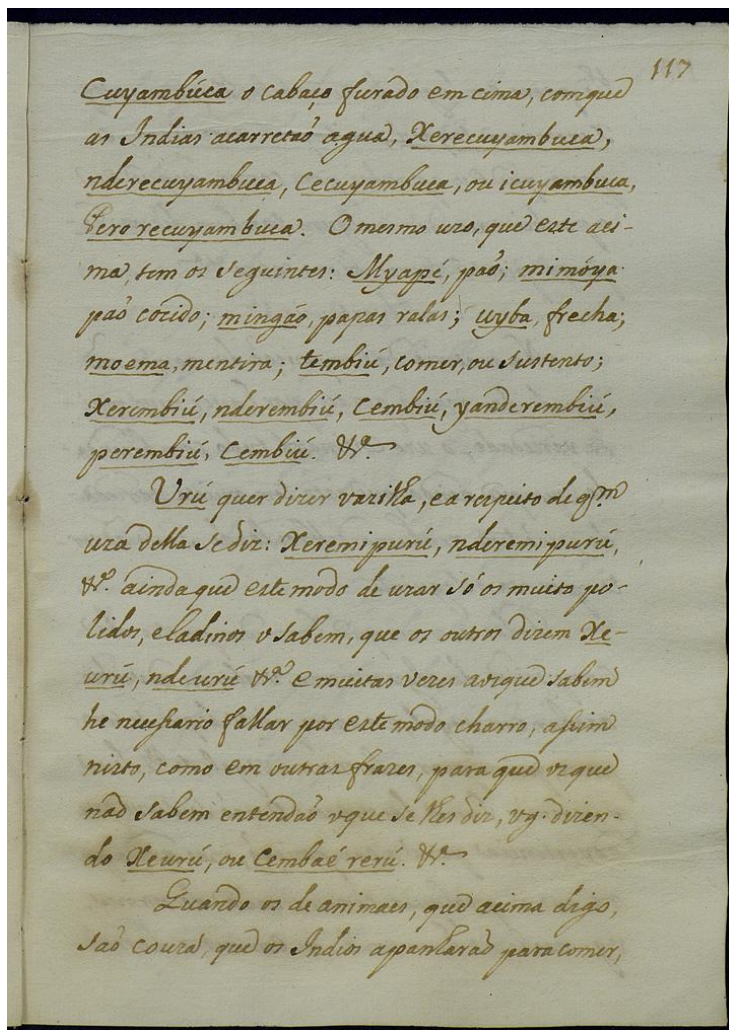 117
Cuyambúca o cabaço furado em cima, comque
as Indias acarretaõ agua, Xerecuyambuca,
nderecuyambuca, Cecuyambuca, ou icuyambuca,
Pero recuyambuca. O mesmo uzo, que este aci-
ma, tem os seguintes: Myapé, paõ; mimóya
paõ cocido; mingáo, papas ralas; uyba, frecha;
moema, mentira; tembiú, comer, ou sustento;
Xerembiú, nderembiú, Cembiú, yanderembiú,
perembiú, Cembiú. &ª
Urú quer dizer vazilha, e a respeito de qᵐ
uza della se diz: Xeremipurú, nderemipurú,
&ª. ainda que este modo de uzar só os muito po-
lidos, e ladinos o sabem, que os outros dizem Xe-
urú, ndeurú &ª e muitas vezes aos que sabem
he necessario fallar por este modo charro, assim
nisto, como em outras frazes, para que os que
naõ sabem entendaõ o que se lhes diz, vg. dizen-
do Xeurú, ou Cembaé rerú. &ª
Quando os de animaes, que acima digo,
saõ couza, que os Indios apanharaõ para comer,